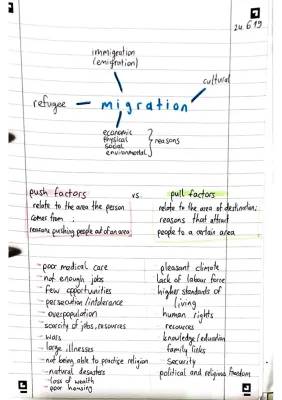 24 6 19
immigration
(emigration)
cultural
refugee
migration
economic
physical
social
environmental
reasons
push factors vs. pull factors
relate to the area the person
comes from ;
reasons pushing people out of an area
relate to the area of destination;
reasons that attract
people to a certain area
- poor medical care
- not enough jobs
- few opportunities
- persecution/intolerance
- overpopulation
- scarcity of jobs, resources
- wars
- large illnesses
- not being able to practice religion
- natural desasters
- loss of wealth
- poor housing
pleasant climate
lack of labour force
higher standards of
living
human rights
recources
knowledge/education
family links
security
political and religious freedom